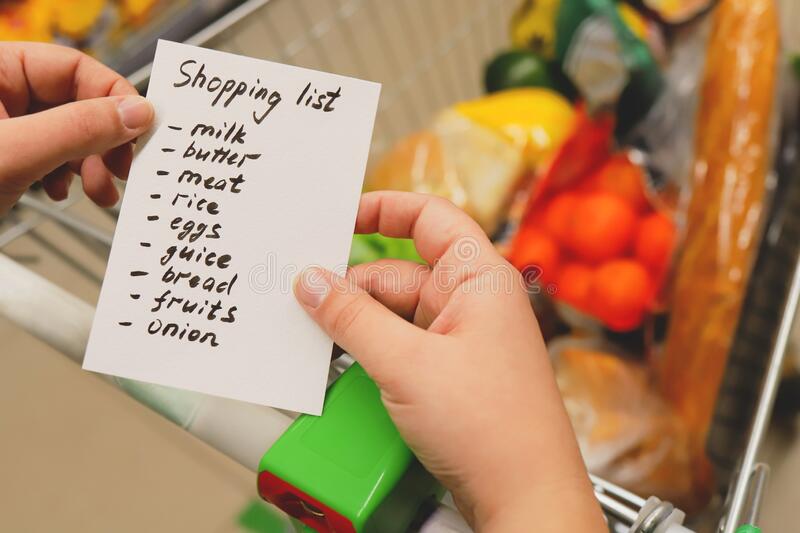 Shopping list
- milk
- butter
- meat
- rice
- eggs
- guice
- bread
- fruits
- onion
dreamstime